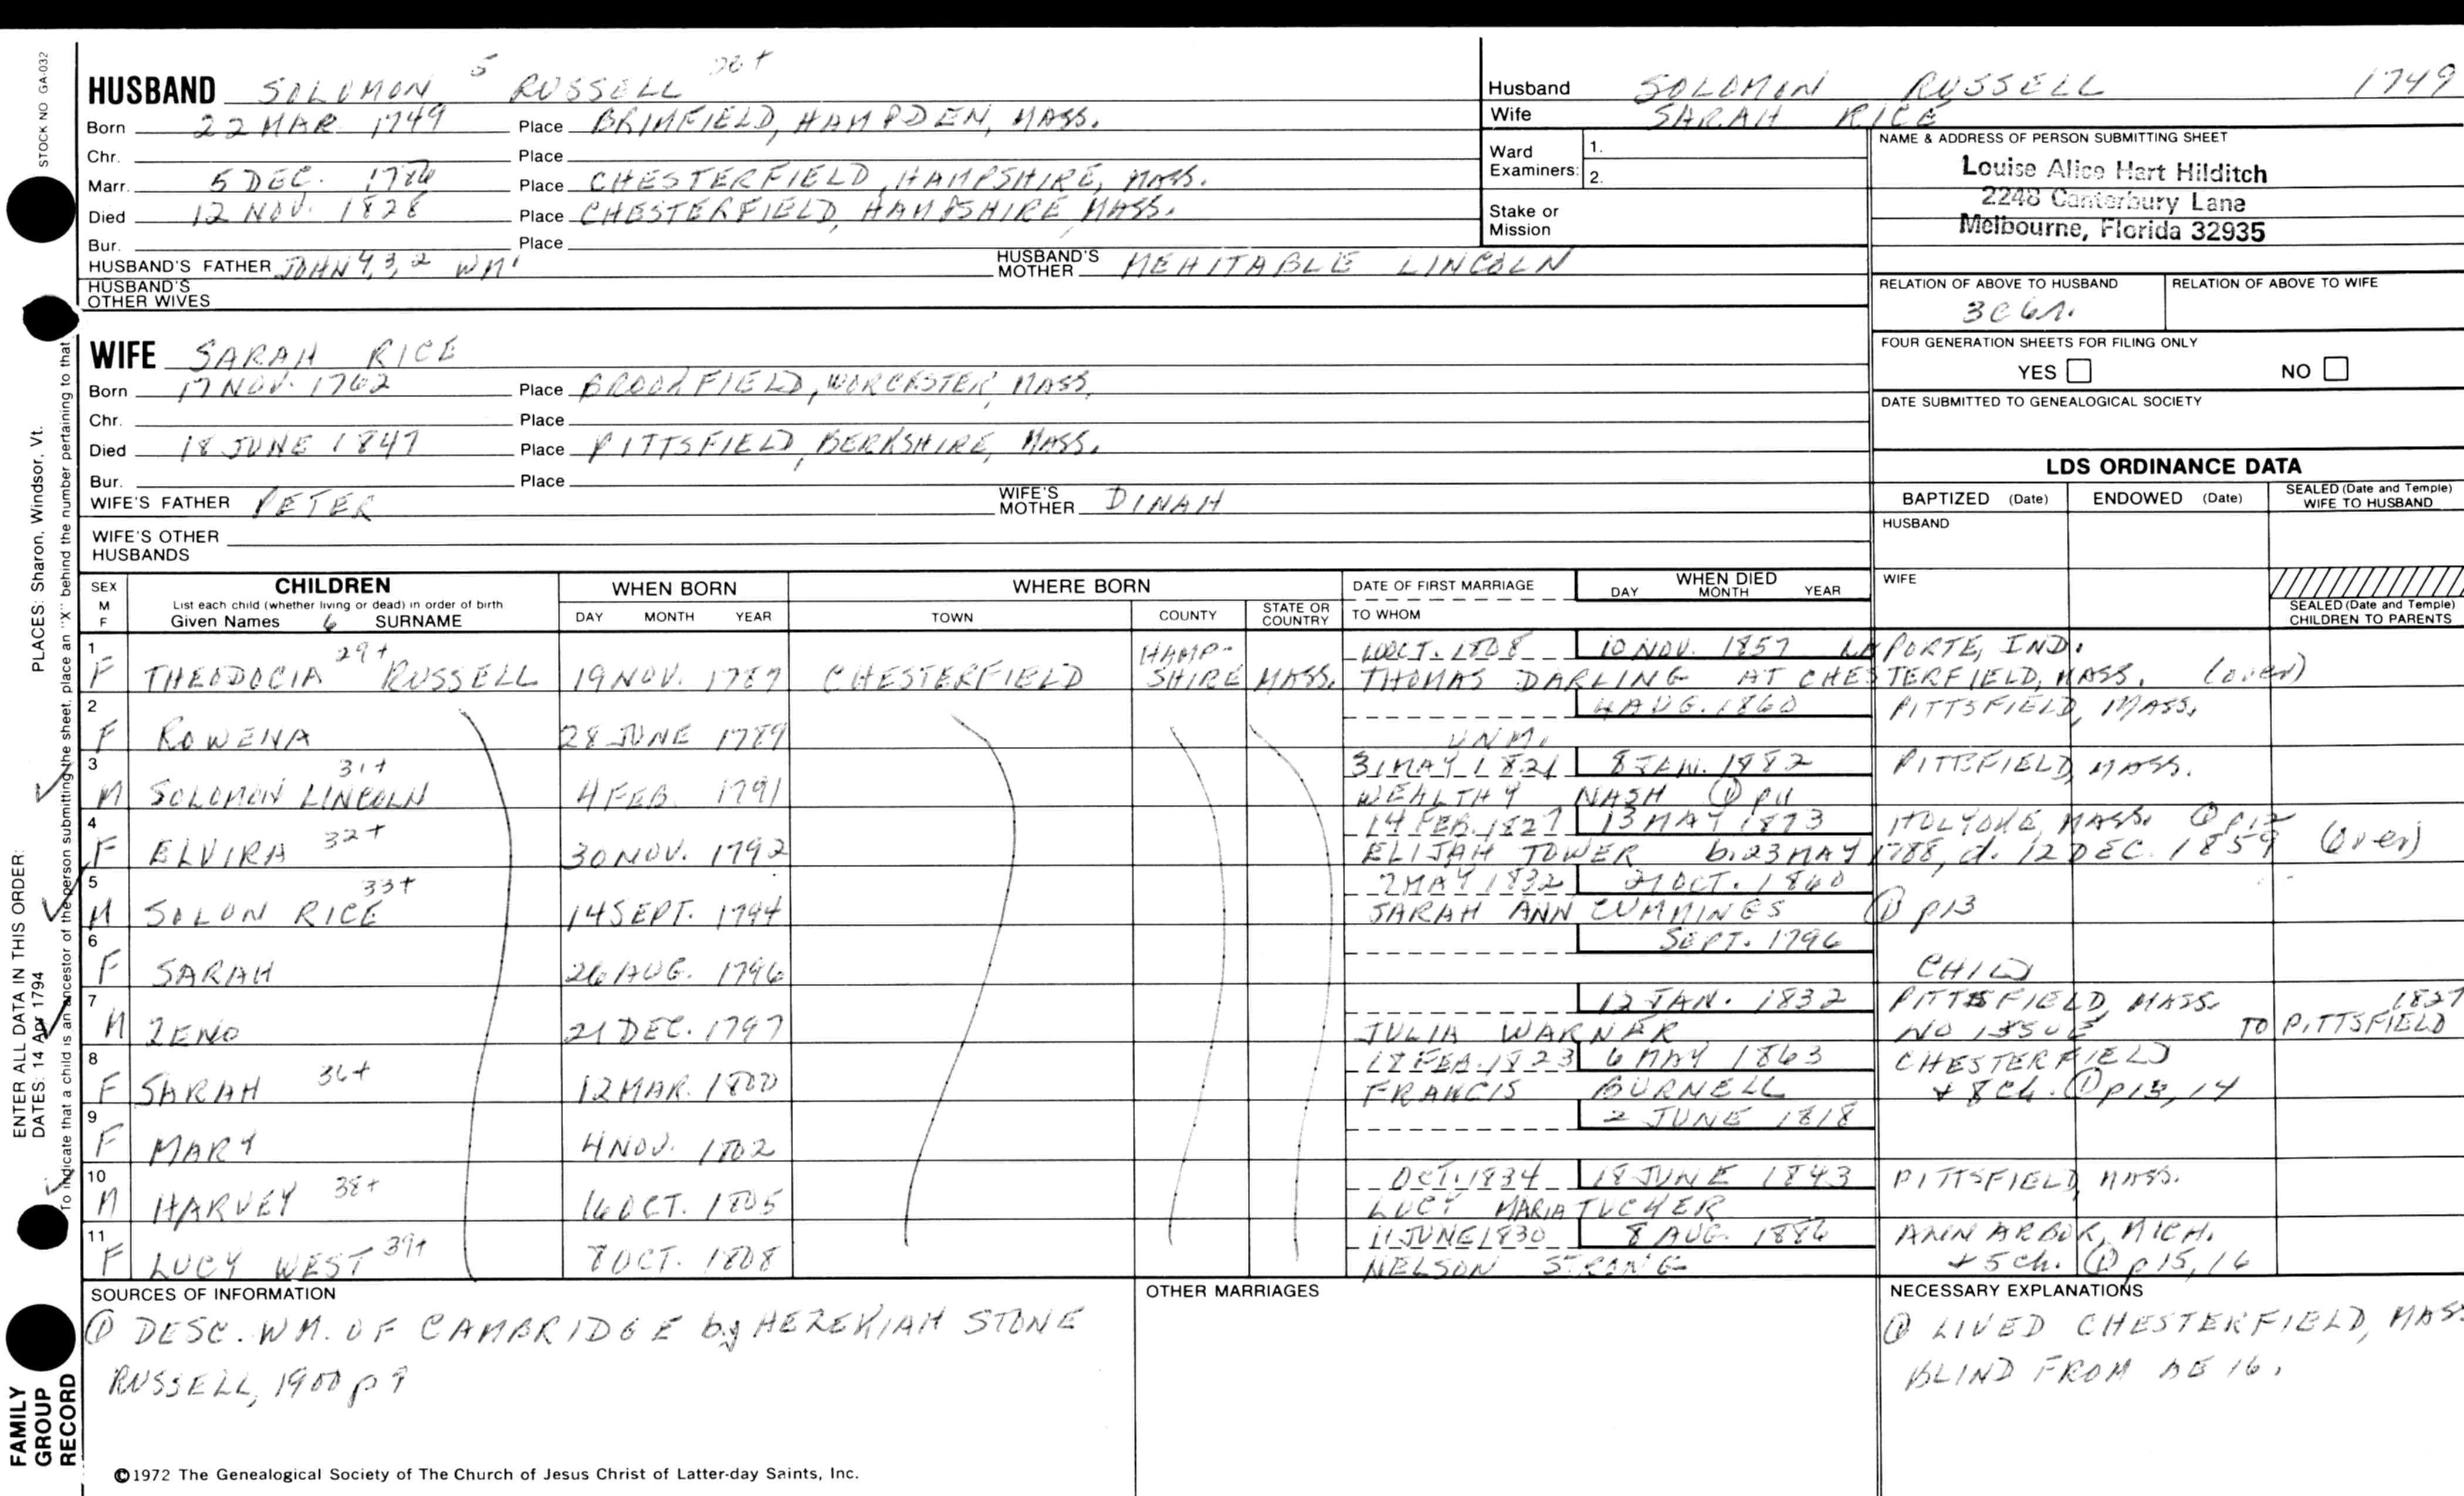 HUSBAND SOLOMON 5 RUSSELL
Born 22 MAR. 1749 Place BRIMFIELD, HAMPDEN, MASS.
Chr. Place
Marr. 5 DEC. 1786 Place CHESTERFIELD, HAMPSHIRE, MASS.
Died 12 NOV. 1828 Place CHESTERFIELD, HAMPSHIRE MASS.
Bur. Place
HUSBAND'S FATHER JOHN 4,3,2 WM' HUSBAND'S MOTHER MEHITABLE LINCOLN
HUSBAND'S OTHER WIVES
Husband SOLOMON RUSSELL 1749
Wife SARAH RICE
Ward Examiners: 1. 2.
Stake or Mission
NAME & ADDRESS OF PERSON SUBMITTING SHEET
Louise Alice Hart Hilditch
2248 Canterbury Lane
Melbourne, Florida 32935
RELATION OF ABOVE TO HUSBAND RELATION OF ABOVE TO WIFE
3C6R.
FOUR GENERATION SHEETS FOR FILING ONLY
YES NO
DATE SUBMITTED TO GENEALOGICAL SOCIETY
WIFE SARAH RICE
Born 17 NOV. 1762 Place BROOKFIELD, WORCESTER, MASS.
Chr. Place
Died 18 JUNE 1847 Place PITTSFIELD, BERKSHIRE, MASS.
Bur. Place
WIFE'S FATHER PETER WIFE'S MOTHER DINAH
WIFE'S OTHER HUSBANDS
LDS ORDINANCE DATA
BAPTIZED (Date) ENDOWED (Date) SEALED (Date and Temple) WIFE TO HUSBAND
HUSBAND
WIFE
SEALED (Date and Temple) CHILDREN TO PARENTS
SEX M F CHILDREN WHEN BORN WHERE BORN DATE OF FIRST MARRIAGE WHEN DIED
List each child (whether living or dead) in order of birth DAY MONTH YEAR TOWN COUNTY STATE OR COUNTRY TO WHOM DAY MONTH YEAR
Given Names 6 SURNAME
1 29+ HAMP- OCT. 1808 10 NOV. 1857 LAPORTE, IND.
F THEODOCIA RUSSELL 19 NOV. 1787 CHESTERFIELD SHIRE MASS. THOMAS DARLING AT CHESTERFIELD, MASS. (over)
2 4 AUG. 1860 PITTSFIELD, MASS.
F ROWENA 28 JUNE 1789 UNM.
3 31+ 31 MAY 1821 8 JAN. 1882 PITTSFIELD, MASS.
M SOLOMON LINCOLN 4 FEB. 1791 WEALTHY NASH ① p11
4 14 FEB. 1827 13 MAY 1873 HOLYOKE, MASS. ① p12
F ELVIRA 32+ 30 NOV. 1792 ELIJAH TOWER b. 23 MAY 1788, d. 12 DEC. 1859 (over)
5 33+ 2 MAY 1832 21 OCT. 1860
M SOLON RICE 14 SEPT. 1794 SARAH ANN CUMMINGS ① p13
6 SEPT. 1796
F SARAH 26 AUG. 1796 CHILD
7 12 JAN. 1832 PITTSFIELD, MASS. 1827
M ZENO 21 DEC. 1797 JULIA WARNER NO ISSUE TO PITTSFIELD
8 18 FEB. 1823 6 MAY 1863 CHESTERFIELD
F SARAH 36+ 12 MAR. 1800 FRANCIS BURNELL + 8 Ch. ① p13, 14
9 2 JUNE 1818
F MARY 4 NOV. 1802
10 OCT. 1834 18 JUNE 1843 PITTSFIELD, MASS.
M HARVEY 38+ 16 OCT. 1805 LUCY MARIA TUCKER
11 11 JUNE 1830 8 AUG. 1886 ANN ARBOR, MICH.
F LUCY WEST 39+ 8 OCT. 1808 NELSON STRONG + 5 ch. ① p15, 16
SOURCES OF INFORMATION OTHER MARRIAGES NECESSARY EXPLANATIONS
① DESC. WM. OF CAMBRIDGE by HEZEKIAH STONE
RUSSELL, 1900 p 9
① LIVED CHESTERFIELD, MASS
BLIND FROM AE 16.
©1972 The Genealogical Society of The Church of Jesus Christ of Latter-day Saints, Inc.
STOCK NO GA-032
PLACES: Sharon, Windsor, Vt.
To indicate that a child is an ancestor of the person submitting the sheet, place an "X" behind the number pertaining to that
ENTER ALL DATA IN THIS ORDER:
DATES: 14 Apr 1794
FAMILY GROUP RECORD